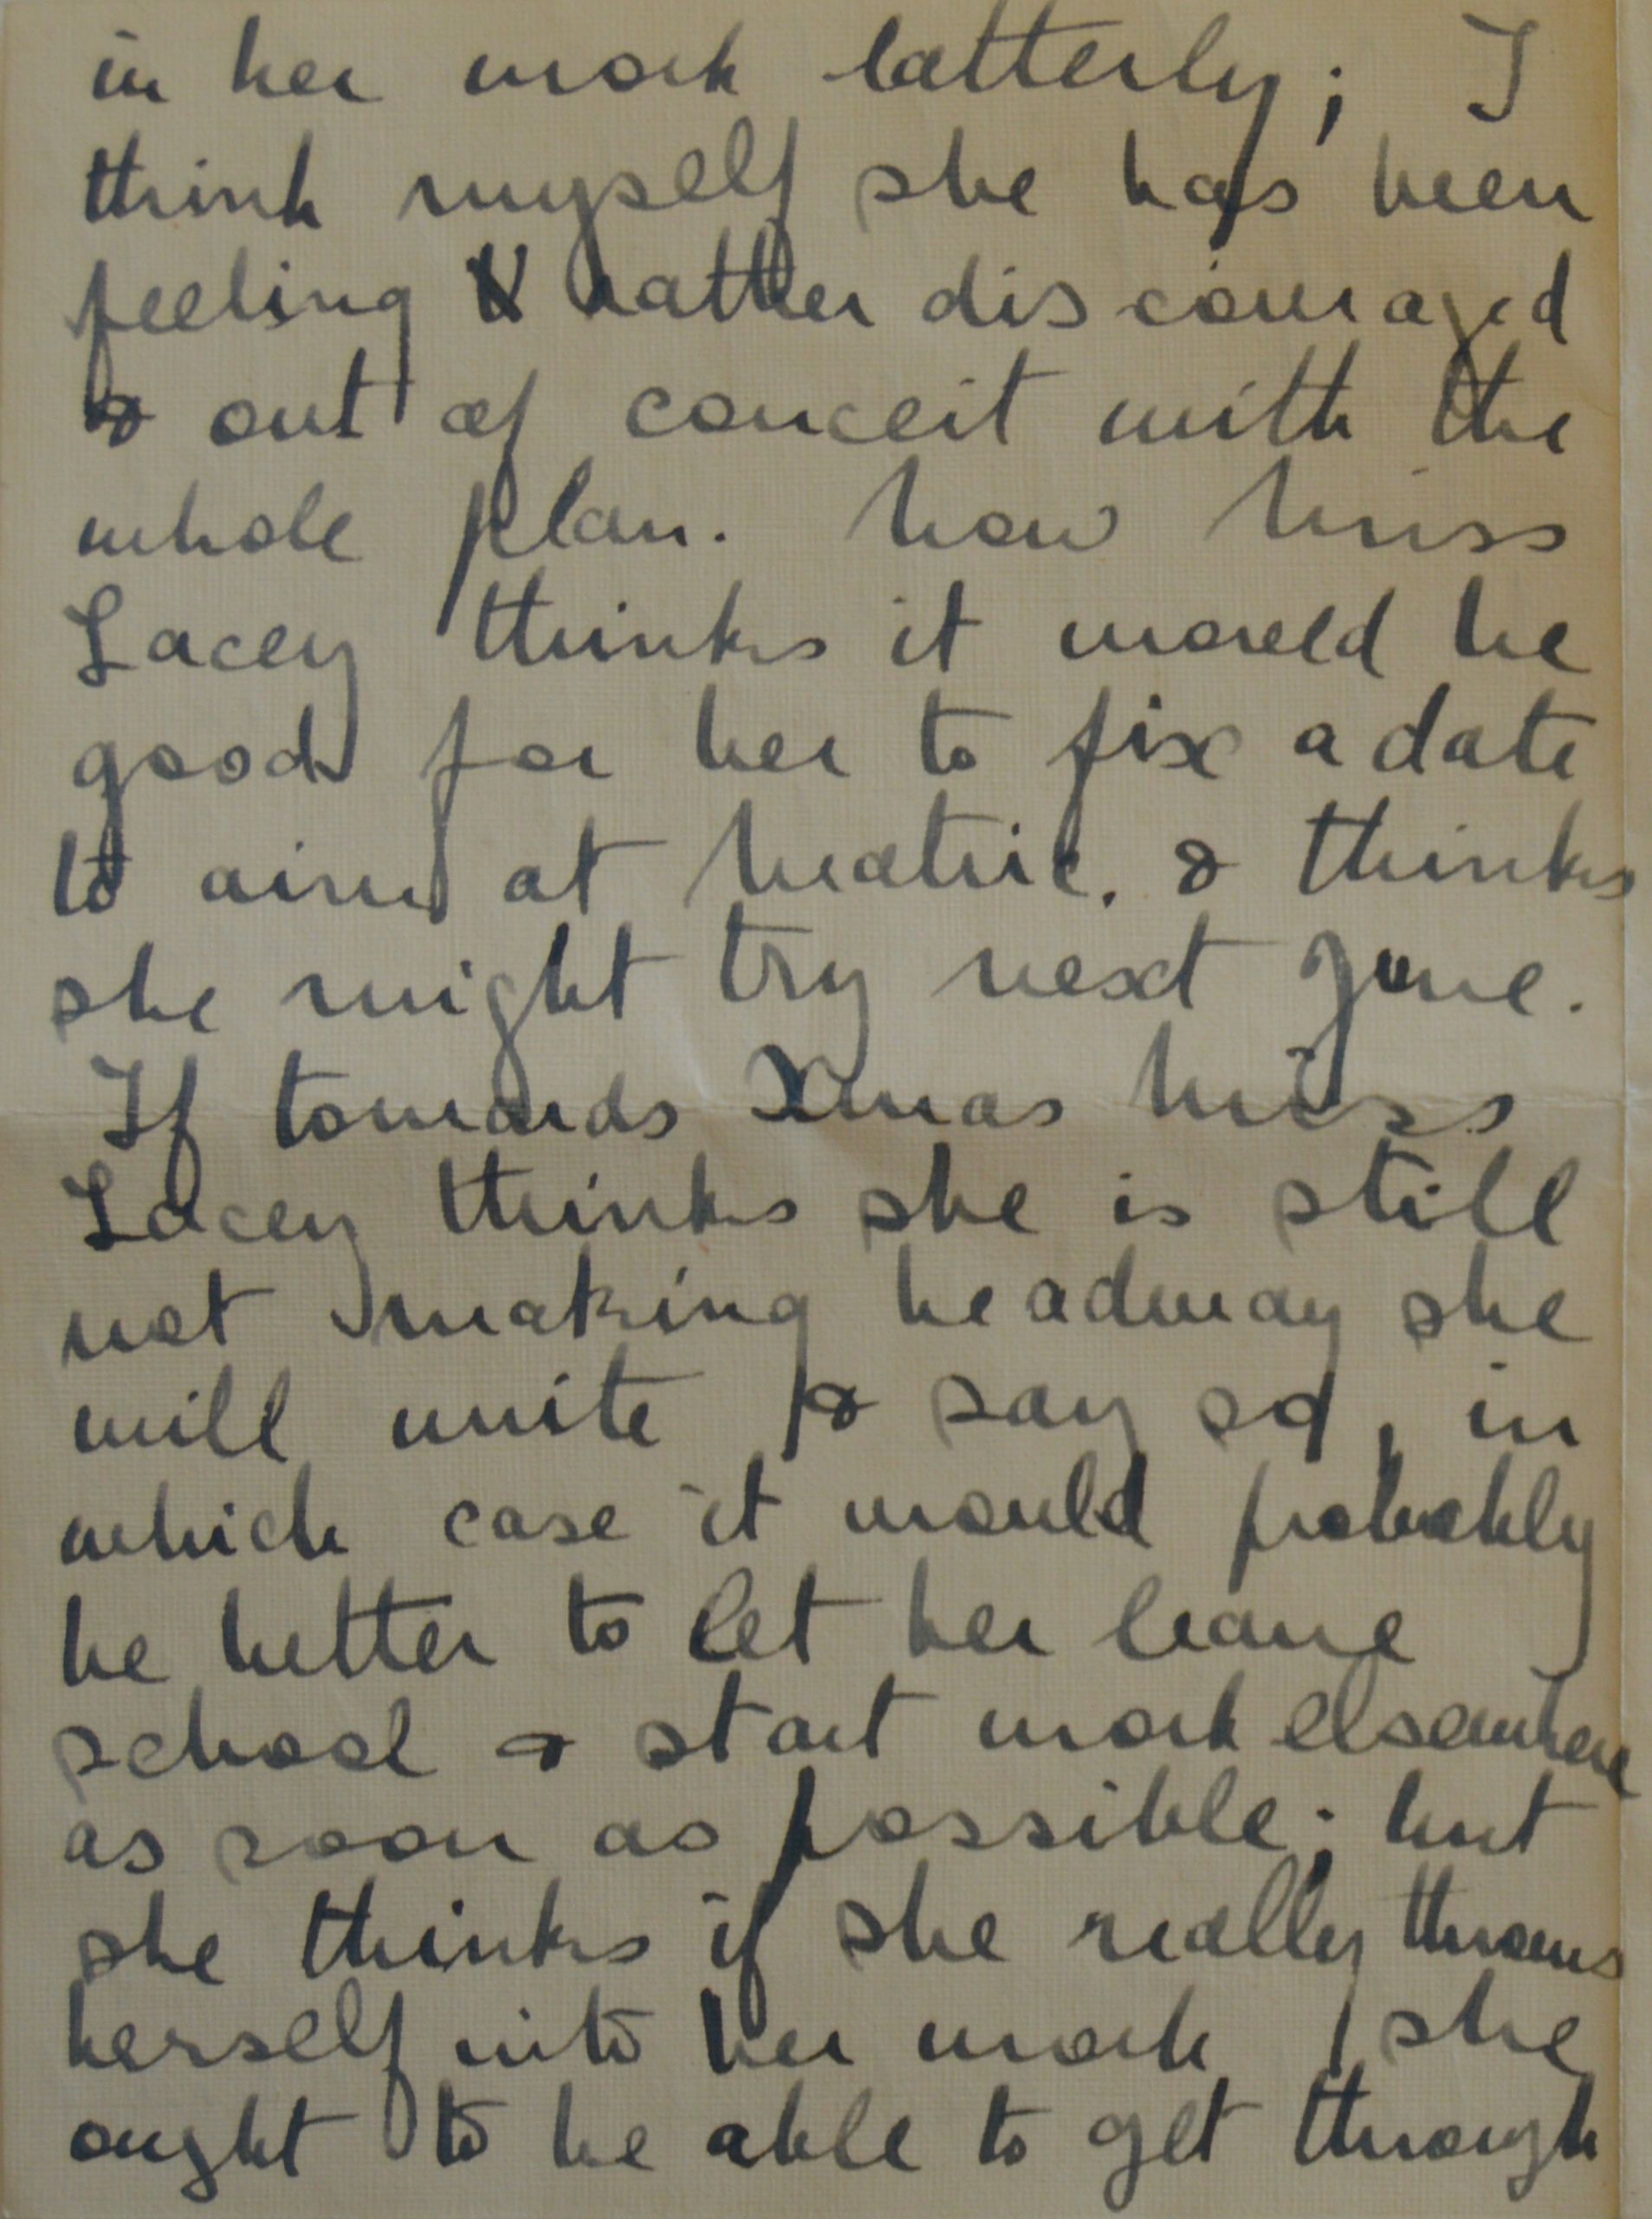 in her work latterly; I
think myself she has been
feeling rather discouraged
& out of conceit with the
whole plan. Now Miss
Lacey thinks it would be
good for her to fix a date
to aim at Matric. & thinks
she might try next June.
If towards Xmas Miss
Lacey thinks she is still
not making headway she
will write & say so, in
which case it would probably
be better to let her leave
school & start work elsewhere
as soon as possible; but
she thinks if she really throws
herself into her work she
ought to be able to get through